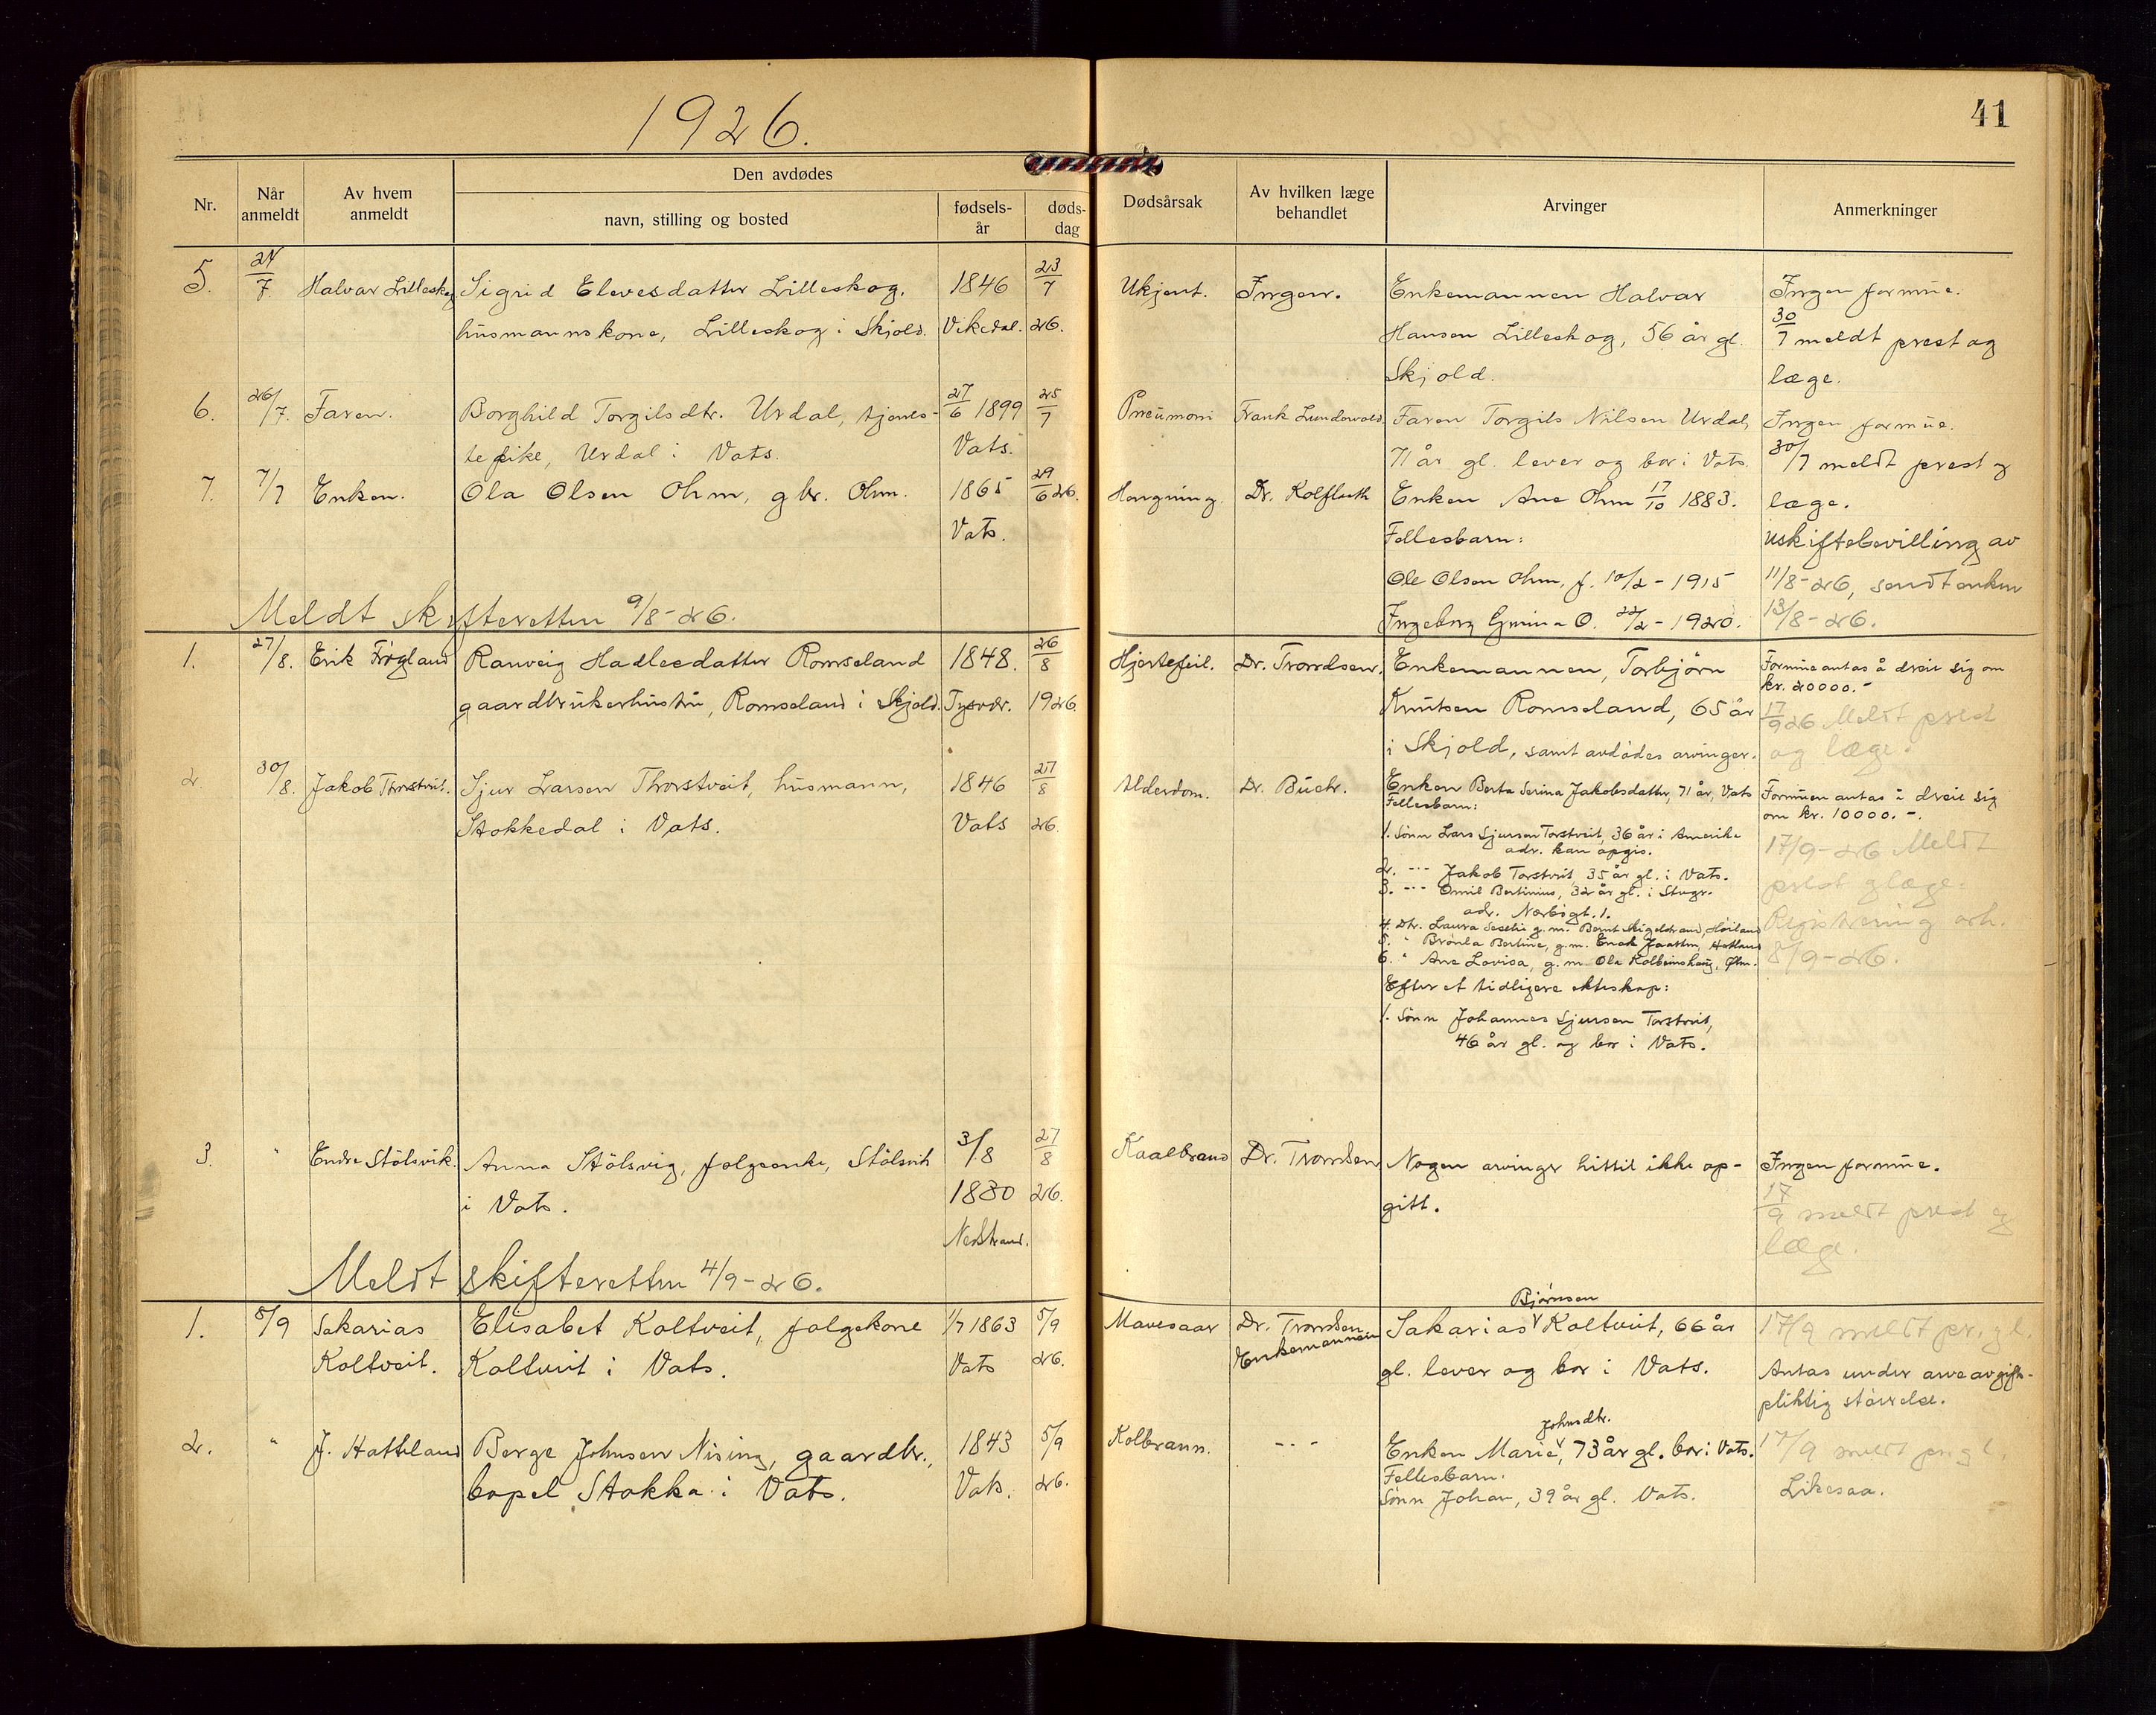 1926.
41
Nr.
Når anmeldt
Av hvem anmeldt
Den avdødes
navn, stilling og bosted
fødsels-år
døds-dag
Dødsårsak
Av hvilken læge behandlet
Arvinger
Anmerkninger
5. 24/7 Halvar Lilleskog Sigrid Elevesdatter Lilleskog, 1846 23/7 Ukjent. Ingen. Enkemannen Halvar Ingen formue.
husmannskone, Lilleskog i Skjold. Vikedal. 26. Hansen Lilleskog, 56 år gl. 30/7 meldt prest og
Skjold. læge.
6. 26/7. Faren. Borghild Torgilsdtr. Urdal, tjenes- 27/6 1899 25/7 Pneumoni Frank Lundervold Faren Torgils Nilsen Urdal, Ingen formue.
tepike, Urdal i Vats. Vats. 71 år gl. lever og bor i Vats. 30/7 meldt prest og
7. 7/7 Enken. Ola Olsen Ohm, gbr. Ohm. 1865 29/6 26. Hengning. Dr. Kolflath Enken Ane Ohm 17/10 1883. læge.
Vats. Fellesbarn: Uskiftebevilling av
Ole Olsen Ohm, f. 10/2 - 1915 11/8-26, sendt enken
Meldt skifteretten 9/8-26. Ingeborg O. 22/2 - 1920. 13/8-26.
1. 27/8. Erik Frøgland Ranveig Hadlesdatter Romseland 1848. 26/8 Hjertefeil. Dr. Trondsen. Enkemannen, Torbjørn Formue antas å dreie sig om
kr. 20000.-
gaardbrukerhustru, Romseland i Skjold. Tysvær. 1926. Knutsen Romseland, 65 år 17/9 26 Meldt prest
i Skjold, samt avdødes arvinger. og læge.
2 30/8. Jakob Thorstveit. Sjur Larsen Thorstveit, husmann, 1846 27/8 Alderdom. Dr. Buch. Enken Berta Serina Jakobsdatter, 71 år, Vats Formuen antas å dreie sig
Stokkedal i Vats. Vats 26. Fellesbarn: om kr. 10000.-.
1. Sønn Lars Sjursen Torstveit, 36 år i Amerika 17/9-26 Meldt
adr. kan opgis.
2. -"- Jakob Torstveit, 35 år gl. i Vats. prest og læge.
3. -"- Omil Bertinius, 32 år gl. i Stvgr.
adr. Nærbøgt. 1.
4. Dtr. Laura g.m. Bernt Høiland Registrering
5. " Bertine, g.m. Enok Hetland
6. " Ane Lovisa, g.m. Ola Kolbeinshaug, Ølen. 8/9-26.
Efter et tidligere ekteskap:
1. Sønn Johannes Sjursen Torstveit,
46 år gl. og bor i Vats.
3. " Endre Stölsvik. Anna Stölsvig, folgeenke, Stölsvik 3/8 27/8 Kaalbrand Dr. Trondsen Nogen arvinger hittil ikke op- Ingen formue.
i Vats. 1830 26. gitt. 17/9 meldt prest og
Nedstrand. læge.
Meldt skifteretten 4/9-26.
1. 5/9 Sakarias Elisabet Koltveit, folgekone 1/7 1863 5/9 Mavesaar Dr. Trondsen Sakarias Bjørnsen Koltveit, 66 år 17/9 meldt pr. og l.
Koltveit. Koltveit i Vats. Vats 26. Enkemannen gl. lever og bor i Vats. Antas under arveavgifts-
pliktig størrelse.
2. " J. Hatteland Berge Johnsen Nising, gaardbr., 1843 5/9 Kolbrann. -"- Enken Marie Johnsdtr., 73 år gl. bor i Vats. 17/9 meldt pr. og l.
bopel Stokka i Vats. Vats. 26. Fellesbarn. Likesaa.
Sønn Johan, 39 år gl. Vats.